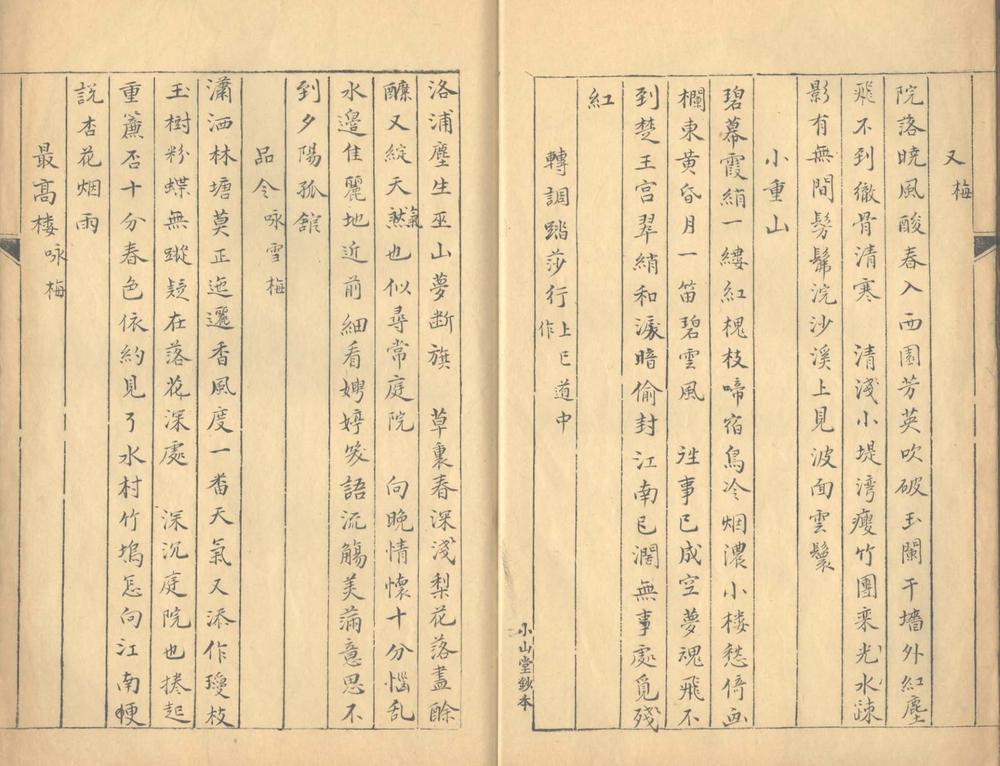 又梅
院落曉風酸春入西園芳英吹破玉闌干墻外紅塵
飛不到徹骨清寒　清淺小堤灣瘦竹團欒光水踈
影有無間髣髴浣沙溪上見波面雲鬟
小重山
碧幕霞綃一縷紅槐枝啼宿鳥冷烟濃小樓愁倚画
欄東黃昏月一笛碧雲風　往事已成空夢魂飛不
到楚王宮翠綃和淚暗偷封江南已濶無事處覓殘
紅
轉調踏莎行上巳道中作
小山堂鈔本
洛浦塵生巫山夢断旗　草裏春深淺梨花落盡酴
醿又綻天氣然也似尋常庭院　向晚情懷十分惱乱
水邊佳麗地近前細看娉婷笑語流觴美滿意思不
到夕陽孤舘
品令咏雪梅
瀟洒林塘莫正迤邐香風度一畨天氣又添作瓊枝
玉樹粉蝶無蹤疑在落花深處　深沉庭院也捲起
重簾否十分春色依約見了水村竹塢怎向江南㪅
説杏花烟雨
最高樓咏梅